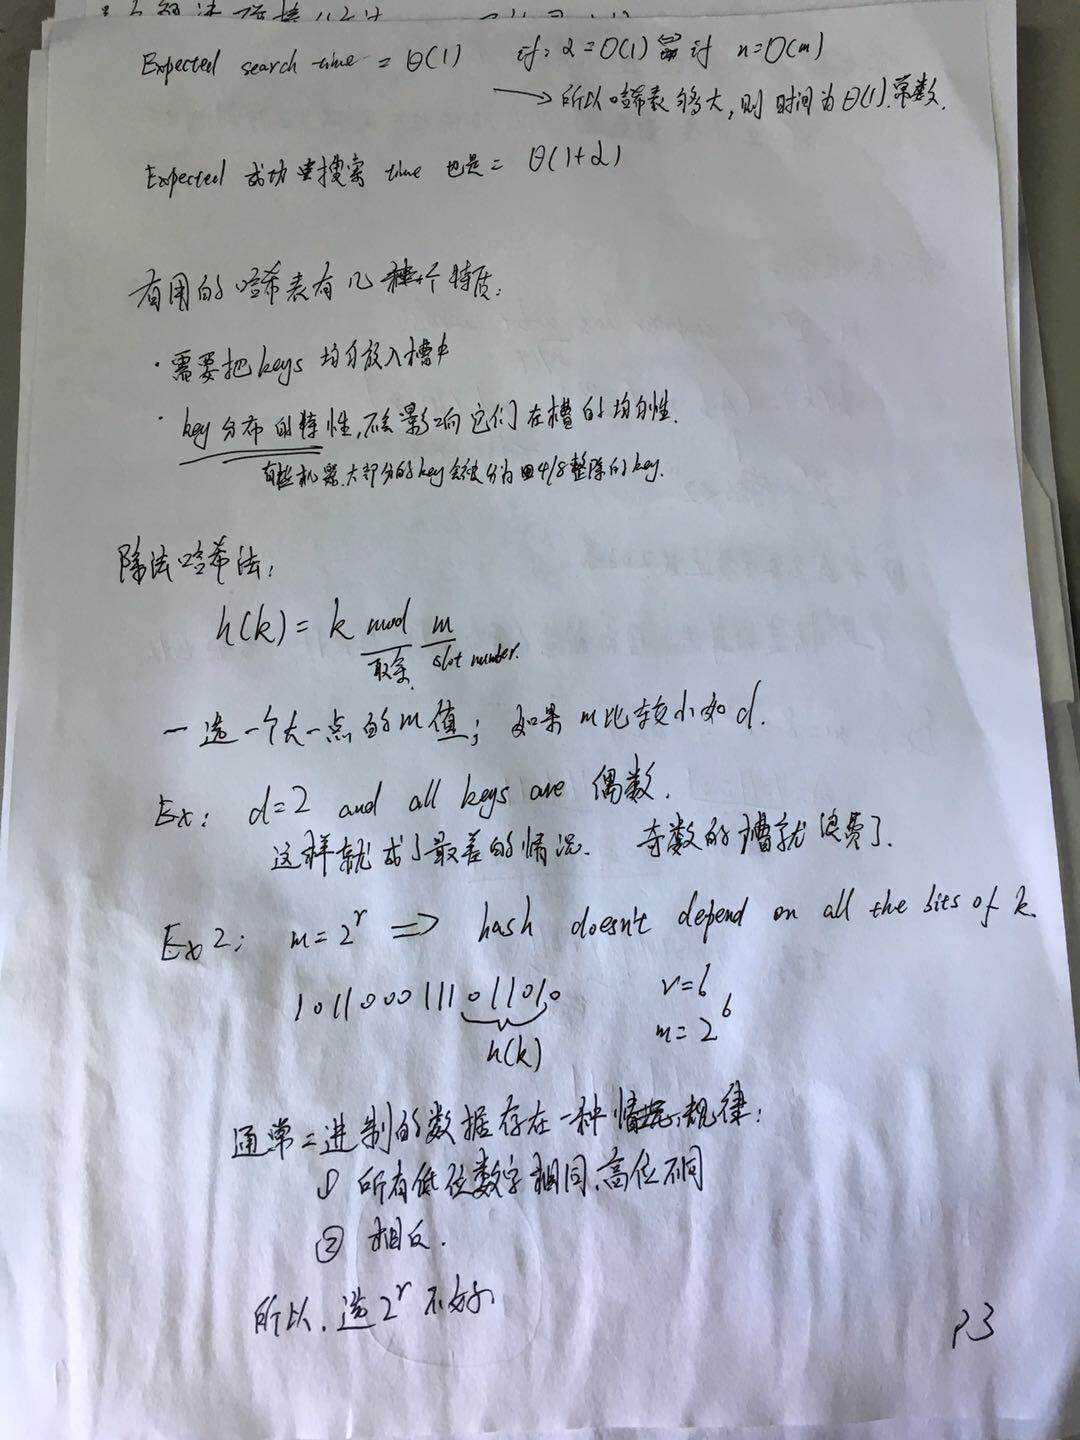 Expected search time = Θ(1) if: α = O(1) if n = O(m)
→ 所以哈希表够大,则时间为Θ(1).常数.
Expected 成功搜索 time 也是 = Θ(1+α)
有用的哈希表有几个特质:
· 需要把keys 均匀放入槽中
· key分布的特性,不会影响它们在槽的均匀性.
有些机器.大部分的key会被分为4/8整除的key.
除法哈希法:
h(k) = k mod m
取余 slot number.
一 选一个大一点的m值; 如果 m比较小如 d.
Ex: d=2 and all keys are 偶数.
这样就成了最差的情况. 奇数的槽就浪费了.
Ex 2: m = 2^r => hash doesn't depend on all the bits of k.
1011000111011010 r=6
m = 2^6
h(k)
通常二进制的数据存在一种规律:
① 所有低位数字相同,高位不同
② 相反.
所以,选2^r 不好.
P3